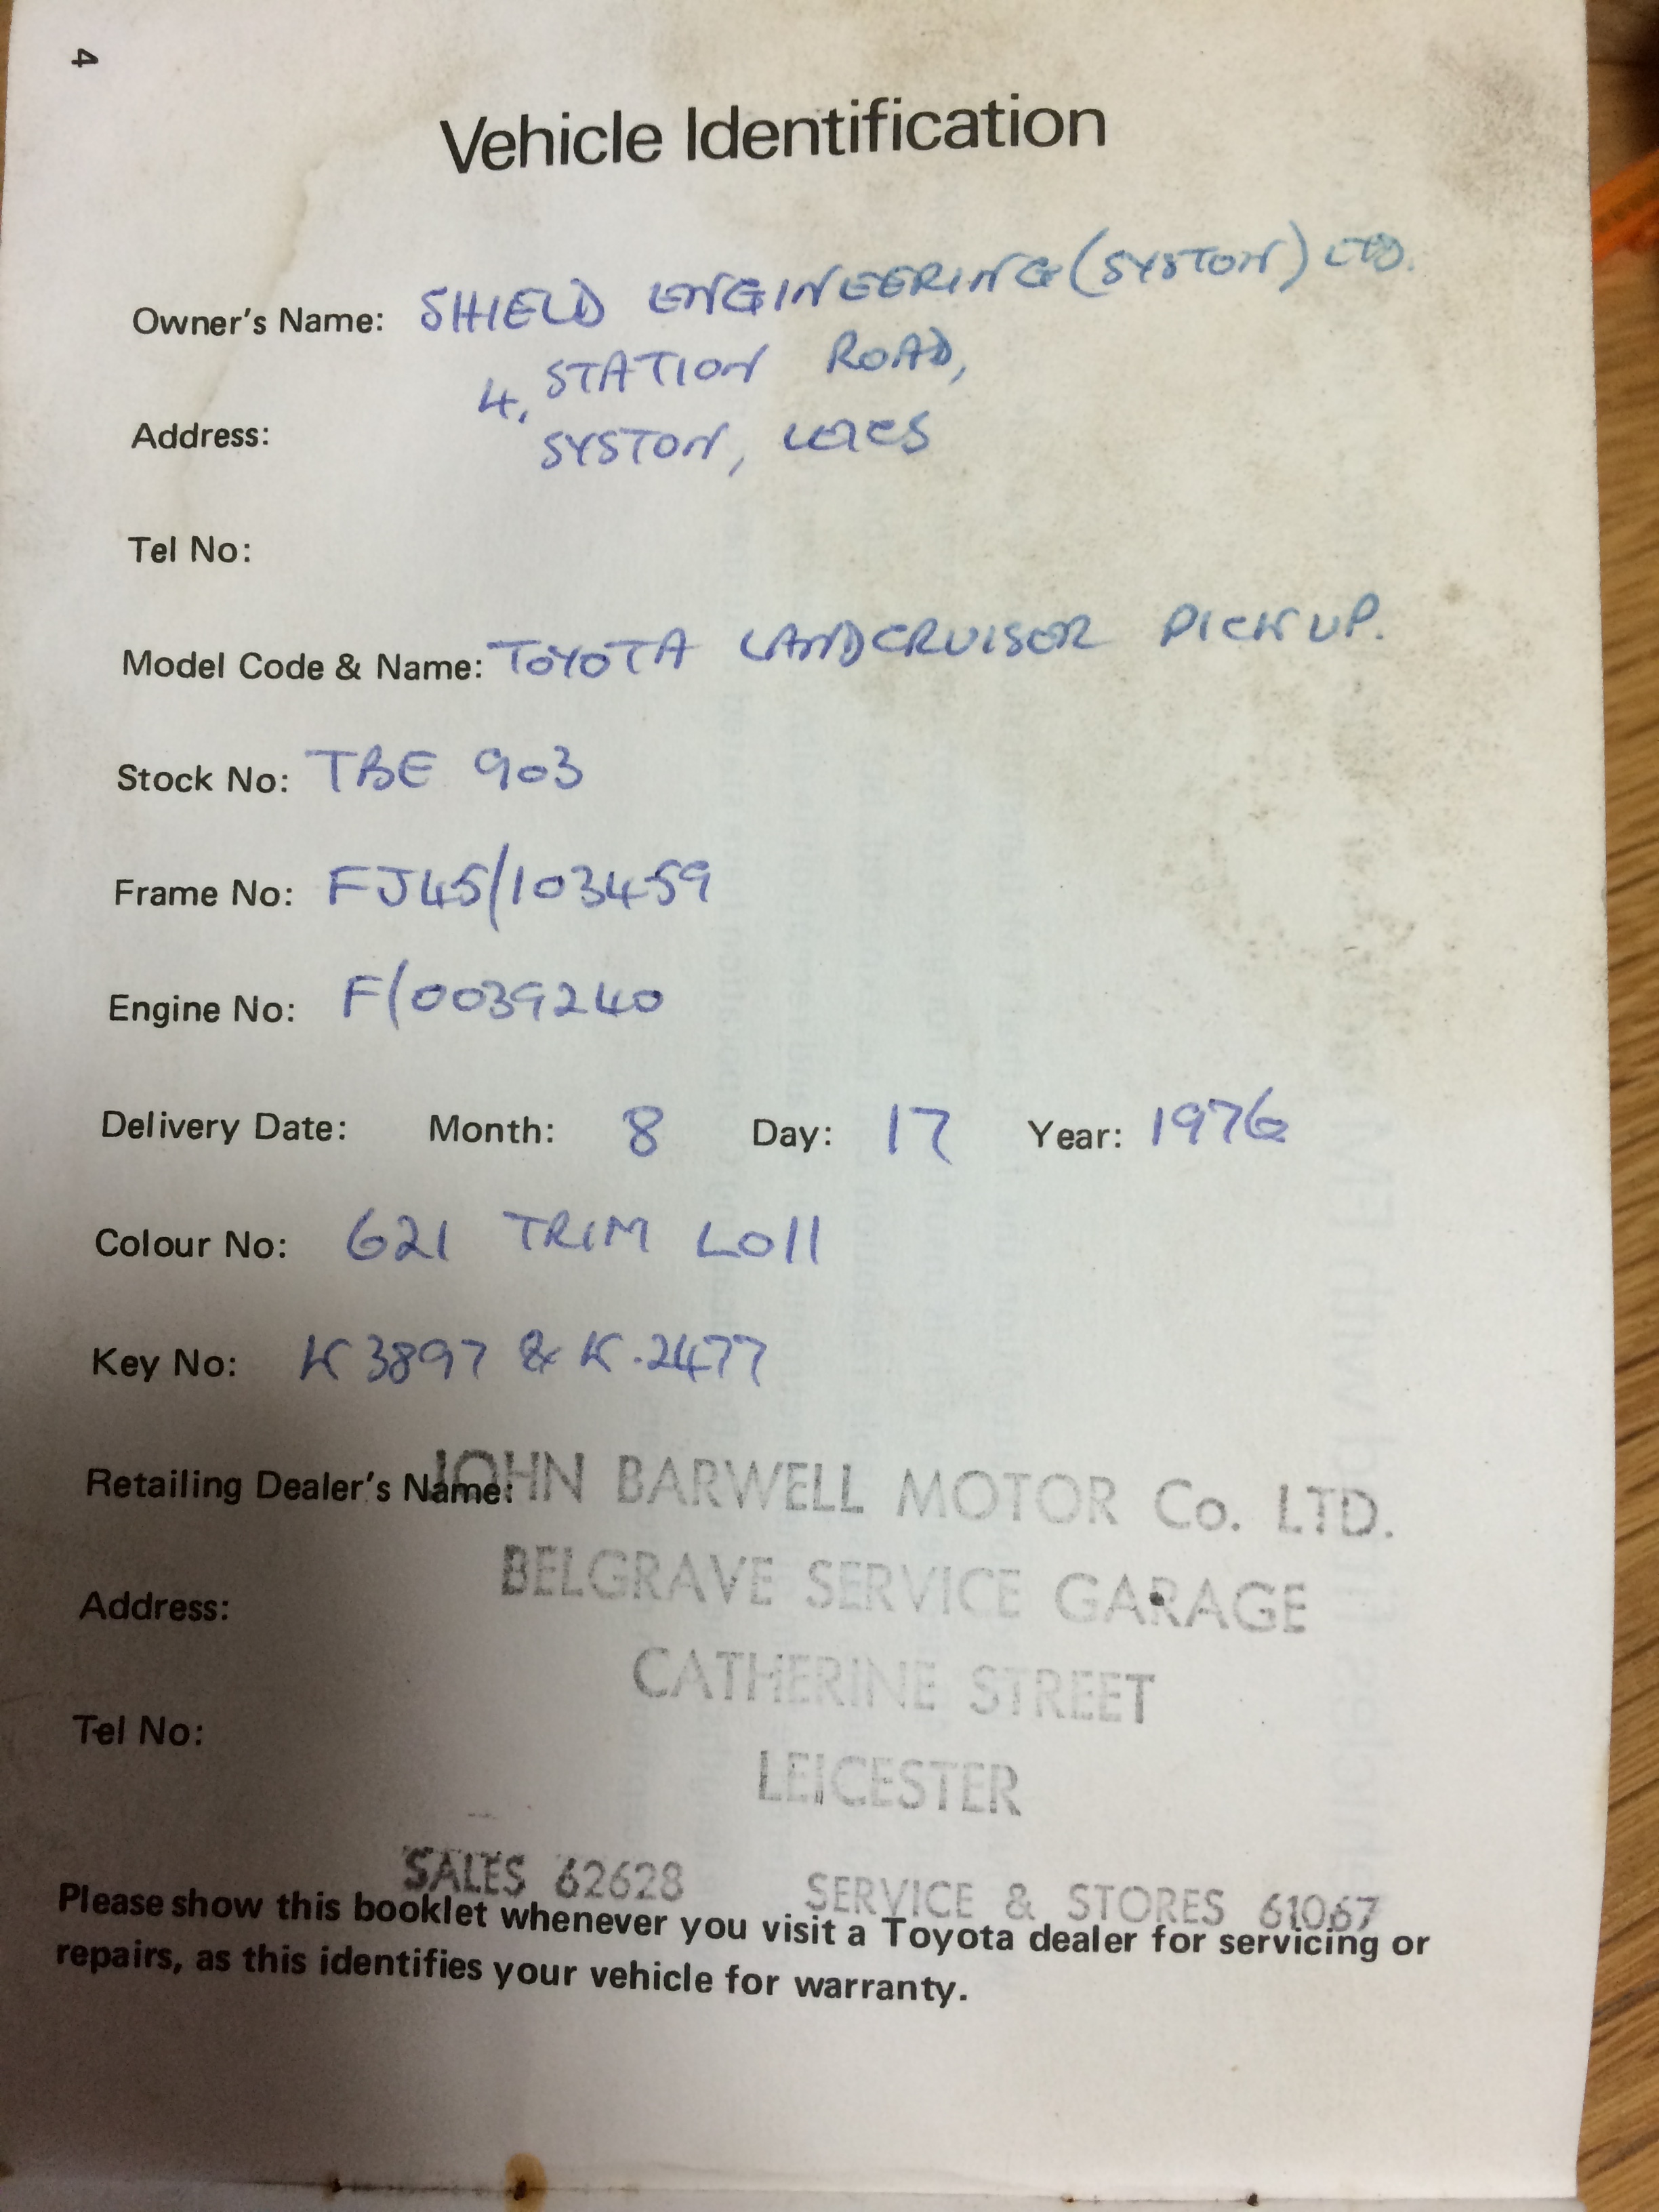 4
Vehicle Identification
Owner's Name: SHIELD ENGINEERING (SYSTON) LTD.
4, STATION ROAD,
Address: SYSTON, LEICS
Tel No:
Model Code & Name: TOYOTA LANDCRUISER PICK UP.
Stock No: TBE 903
Frame No: FJ45/103459
Engine No: F/0039240
Delivery Date: Month: 8 Day: 17 Year: 1976
Colour No: 621 TRIM LO11
Key No: K3897 & K.2477
Retailing Dealer's Name: JOHN BARWELL MOTOR Co. LTD.
BELGRAVE SERVICE GARAGE
Address:
CATHERINE STREET
Tel No:
LEICESTER
SALES 62628 SERVICE & STORES 61067
Please show this booklet whenever you visit a Toyota dealer for servicing or
repairs, as this identifies your vehicle for warranty.